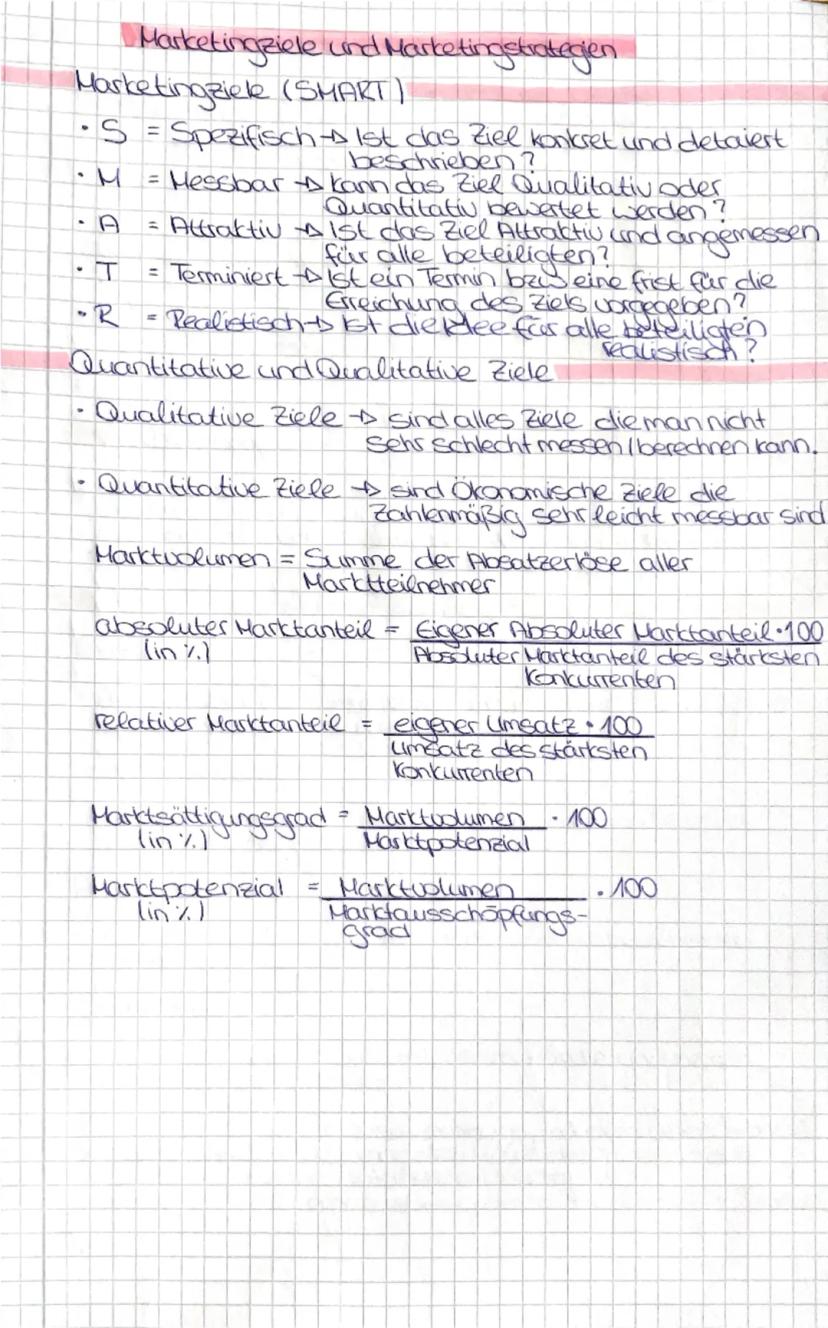 Marketingziele und Marketingstrategien
Marketingziele (SMART)
• S = Spezifisch → Ist das Ziel konkret und detaiert
beschrieben?
• M = Messbar → kann das Ziel Qualitativ oder
Quantitativ bewertet werden?
• A = Attraktiv → Ist das Ziel Attraktiv und angemessen
für alle beteiligten?
• T = Terminiert → Ist ein Termin bzw eine frist für die
Erreichung des Ziels vorgegeben?
• R = Realistisch → Ist die Idee für alle beteiligten
realistisch?
Quantitative und Qualitative Ziele
• Qualitative Ziele → sind alles Ziele die man nicht
sehr schlecht messen/berechnen kann.
• Quantitative Ziele → sind Ökonomische Ziele die
Zahlenmäßig sehr leicht messbar sind
Marktvolumen = Summe der Absatzerlöse aller
Marktteilnehmer
absoluter Marktanteil = Eigener Absoluter Marktanteil • 100
(in %) Absoluter Marktanteil des stärksten
Konkurrenten
relativer Marktanteil = eigener Umsatz • 100
Umsatz des stärksten
Konkurrenten
Marktsättigungsgrad = Marktvolumen • 100
(in %) Marktpotenzial
Marktpotenzial = Marktvolumen • 100
(in %) Marktausschöpfungs-
grad